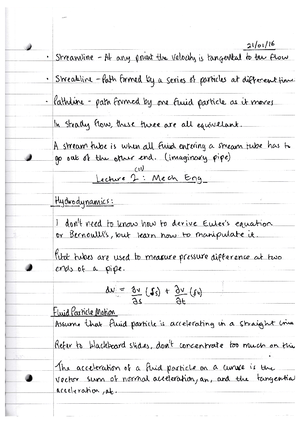 21/01/16
· Streamline - At any point the velocity is tangential to the flow
· Streakline - Path formed by a series of particles at different time
· Pathline - path formed by one fluid particle as it moves
In steady flow, these three are all equivalent.
A stream tube is when all fluid entering a stream tube has to
go out of the other end. (imaginary pipe)
Lecture 2: Mech Eng
Hydrodynamics:
I don't need to know how to derive Euler's equation
or Bernoulli's, but learn how to manipulate it.
Pitot tubes are used to measure pressure difference at two
ends of a pipe.
dv = ∂v/∂s (ds) + ∂v/∂t (dt)
Fluid Particle Motion
Assume that fluid particle is accelerating in a straight line
Refer to blackboard slides, don't concentrate too much on this
The acceleration of a fluid particle on a curve is the
vector sum of normal acceleration, an, and the tangential
acceleration, at.